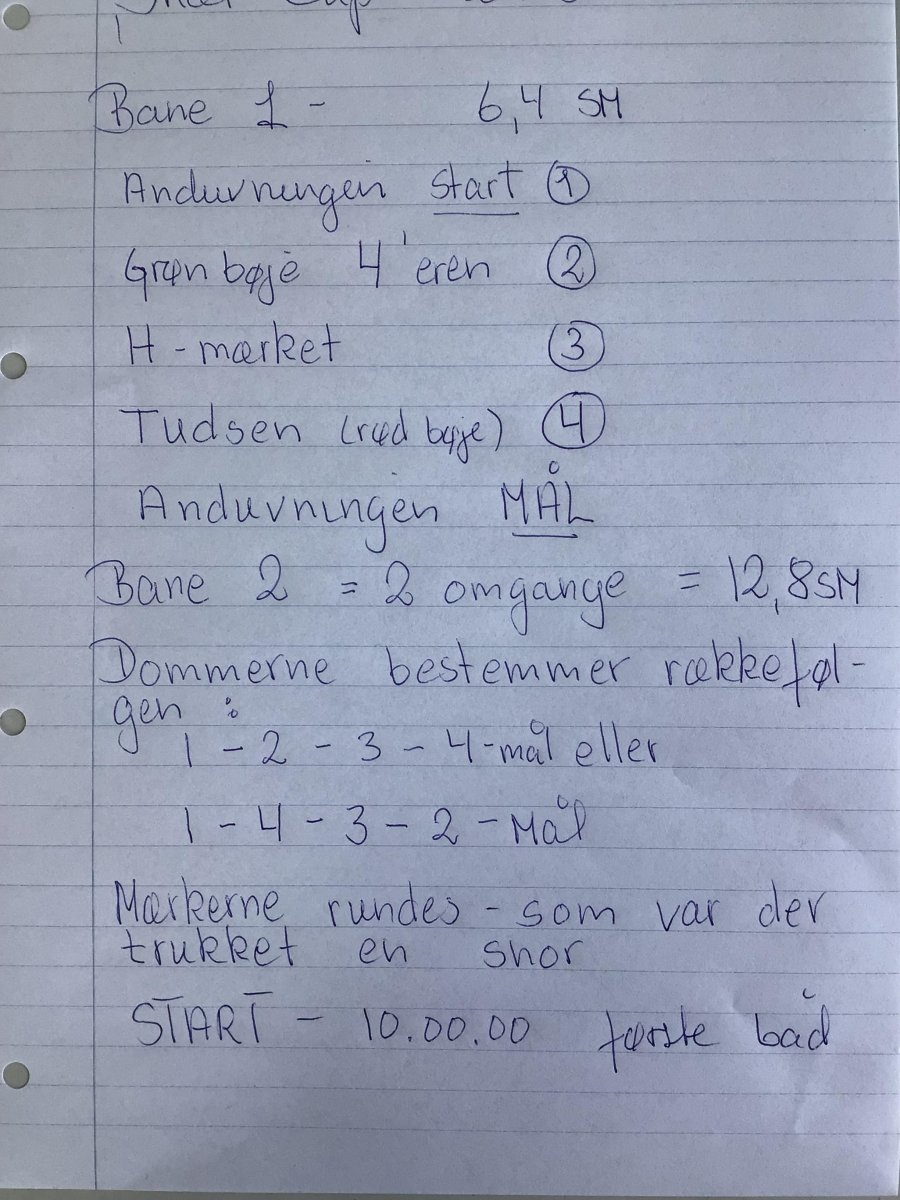 Bane 1 - 6,4 SM
Anduvningen start ①
Grøn bøje 4'eren ②
H - mærket ③
Tudsen (rød bøje) ④
Anduvningen MÅL
Bane 2 = 2 omgange = 12,8 SM
Dommerne bestemmer rækkeføl-
gen :
1 - 2 - 3 - 4 - mål eller
1 - 4 - 3 - 2 - Mål
Mærkerne rundes - som var der
trukket en snor
START - 10.00.00 første båd